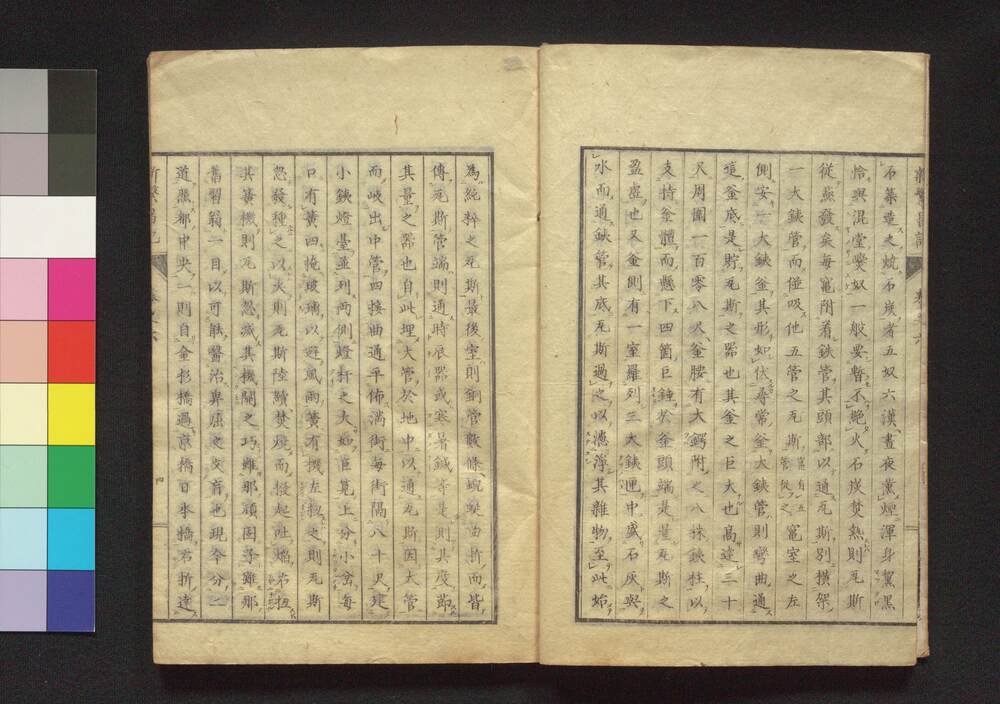 石築造之燒石炭者五奴六漢晝夜薰煙渾身黧黒
恰與混堂爨奴一般要暫不絶火石炭焚熱則瓦斯
從燕發矣每竈附着鉄管其頭部以通瓦斯別橫架
一大鉄管而催吸他五管之瓦斯竈室之左
側安一大鉄釜其形如伏尋常釜大鉄管則彎曲通
這釜底是貯瓦斯之器也其釜之巨大也高達三十
尺周圍一百零八尺釜腰有大鍔附之八株鉄柱以
支持釜體而懸下四箇巨錘於釜頭端是量瓦斯之
盈虚也又釜側有一室羅列三大鉄匣中盛石灰與
水而通鉄管其底瓦斯過之以濾淨其雜物至此始
為純粹之瓦斯最後室則銅管數條蜿蜒曲折而皆
傳瓦斯管端則通時辰器或寒暑鍼等是則其度節
其量之器也自此埋大管於地中以通瓦斯因大管
而岐出中管四接曲通平佈満街每街隔八十尺建
小鉄燈臺並列両側燈杆之大如笕上分小岔每
口有簧四擁玻璃以避風雨簧有機左捩之則瓦斯
忽發種之以火則瓦斯陸續焚燒而投起吐焔右捩
其簧機則瓦斯忽滅其機関之巧雖那頑固子雖那
舊習翁一目以可触醫治鼻屈之文育也現今分二
道照都中央一則自金杉橋過京橋日本橋右折達
四